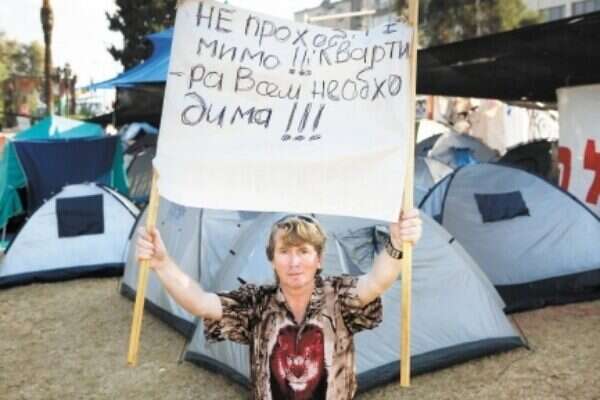 НЕ ПРОХОДИ
мимо !!! Кварти
-ра Всем необхо
дима !!!